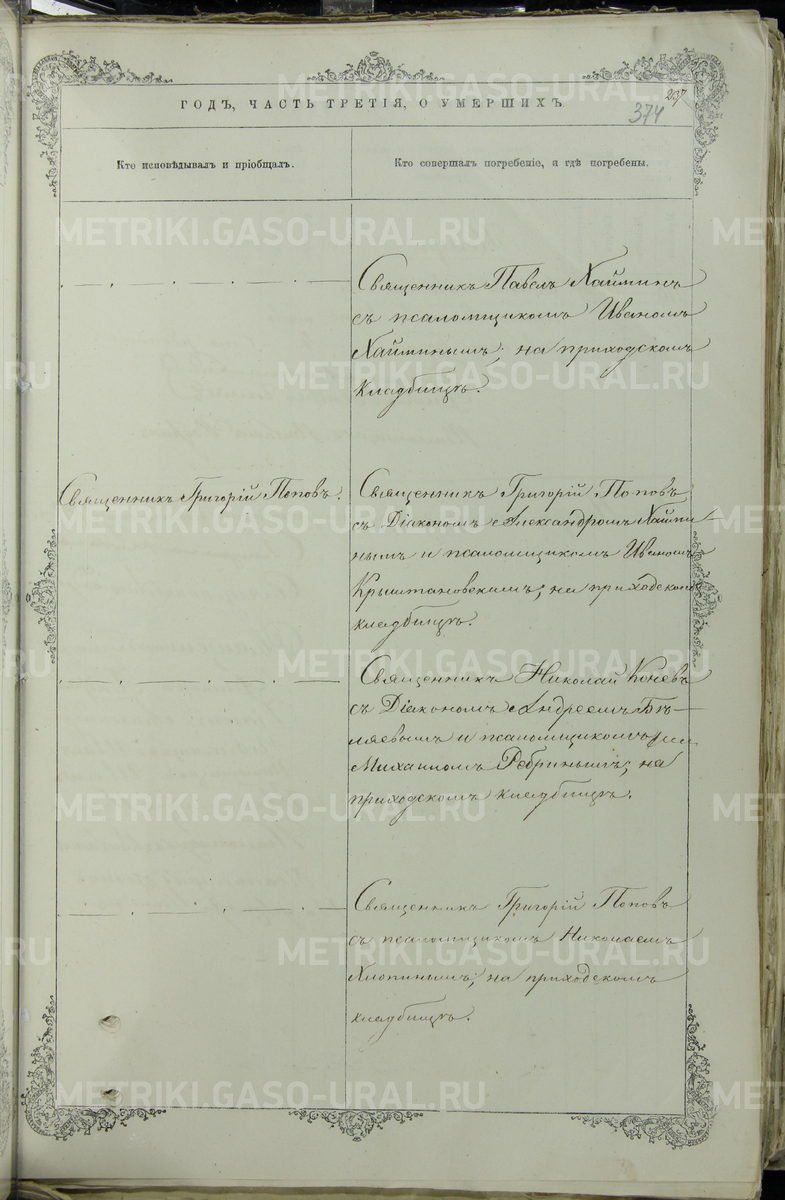 237
374
ГОДЪ, ЧАСТЬ ТРЕТІЯ, О УМЕРШИХЪ
Кто исповѣдывалъ и пріобщалъ.
Кто совершалъ погребеніе, а гдѣ погребены.
Священникъ Павелъ Хайминъ
съ псаломщикомъ Иваномъ
Хайминымъ; на приходскомъ
кладбищѣ.
Священникъ Григорій Поповъ.
Священникъ Григорій Поповъ
съ Діакономъ Александромъ Хайми-
нымъ и псаломщикомъ Иваномъ
Крыштановскимъ; на приходскомъ
кладбищѣ.
Священникъ Николай Коневъ
съ Діакономъ Андреемъ Бѣ-
ляевымъ и псаломщикомъ
Михаиломъ Ребринымъ; на
приходскомъ кладбищѣ.
Священникъ Григорій Поповъ
съ псаломщикомъ Николаемъ
Хлопинымъ; на приходскомъ
кладбищѣ.
METRIKI.GASO-URAL.RU